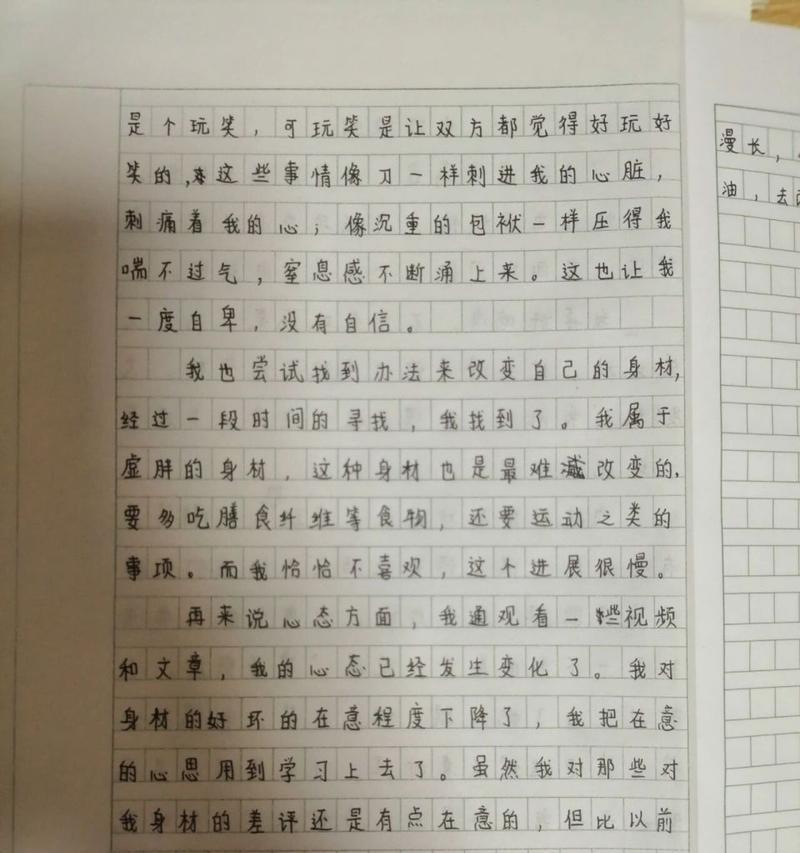 是个玩笑，可玩笑是让双方都觉得好玩好
笑的，这些事情像刀一样刺进我的心脏，
刺痛着我的心；像沉重的包袱一样压得我
喘不过气，窒息感不断涌上来。这也让我
一度自卑，没有自信。
我也尝试找到办法来改变自己的身材，
经过一段时间的寻找，我找到了。我属于
虚胖的身材，这种身材也是最难减改变的，
要多吃膳食纤维等食物，还要运动之类的
事项。而我恰恰不喜观，这个进展很慢。
再来说心态方面，我通观看一些视频
和文章，我的心态已经发生变化了。我对
身材的好坏的在意程度下降了，我把在意
的心思用到学习上去了。虽然我对那些对
我身材的差评还是有点在意的，但比以前
漫长，
油，去